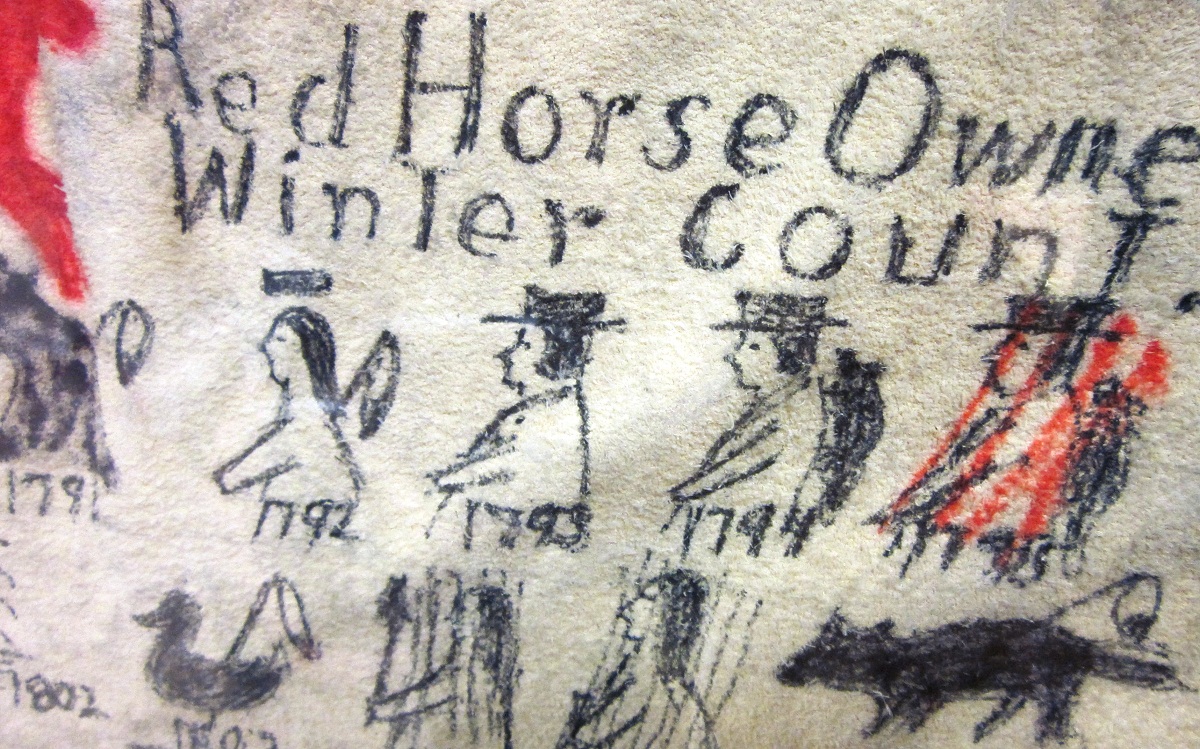 Red Horse Owne
Winter Count.
1791 1792 1793 1794 1795
1802 1803